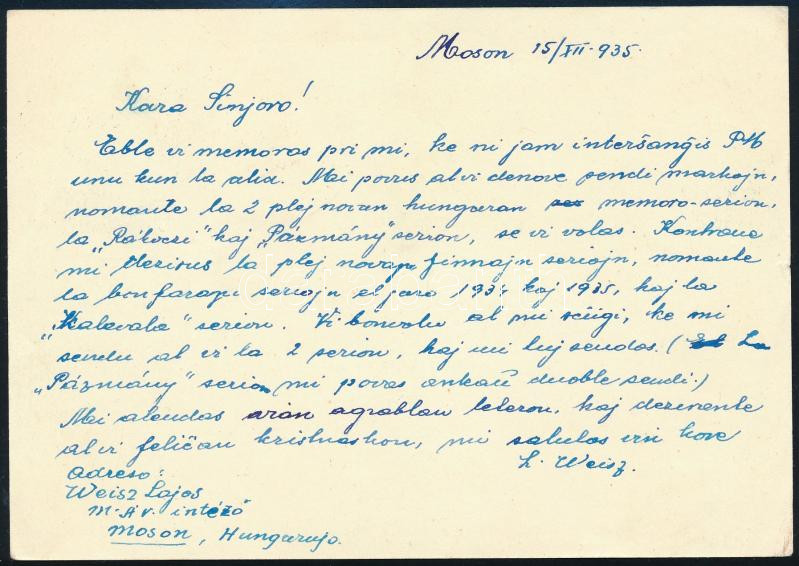 Moson 15/XII-935.
Kara Sinjoro!
Eble vi memoras pri mi, ke ni jam interŝanĝis PM
unu kun la alia. Mi povus al vi denove sendi markojn,
nomante la 2 plej novan hungaran memoro-serion,
la "Rákoczi" kaj "Pázmány" serion, se vi volas. Kontraue
mi dezirus la plej novajn finnajn seriojn, nomante
la bonfarajn seriojn el jaro 1934 kaj 1935, kaj la
"Kalevala" serion. Vi bonvolu al mi sciigi, ke mi
sendu al vi la 2 serion, kaj mi tuj sendos. ( La
"Pázmány" serion mi povas ankaŭ duoble sendi.)
Mi atendas vian agrablan leteron, kaj dezirante
al vi feliĉan kristnaskon, mi salutas vin kore
L. Weisz.
Adreso:
Weisz Lajos
M.Á.V. intéző
Moson, Hungarujo.